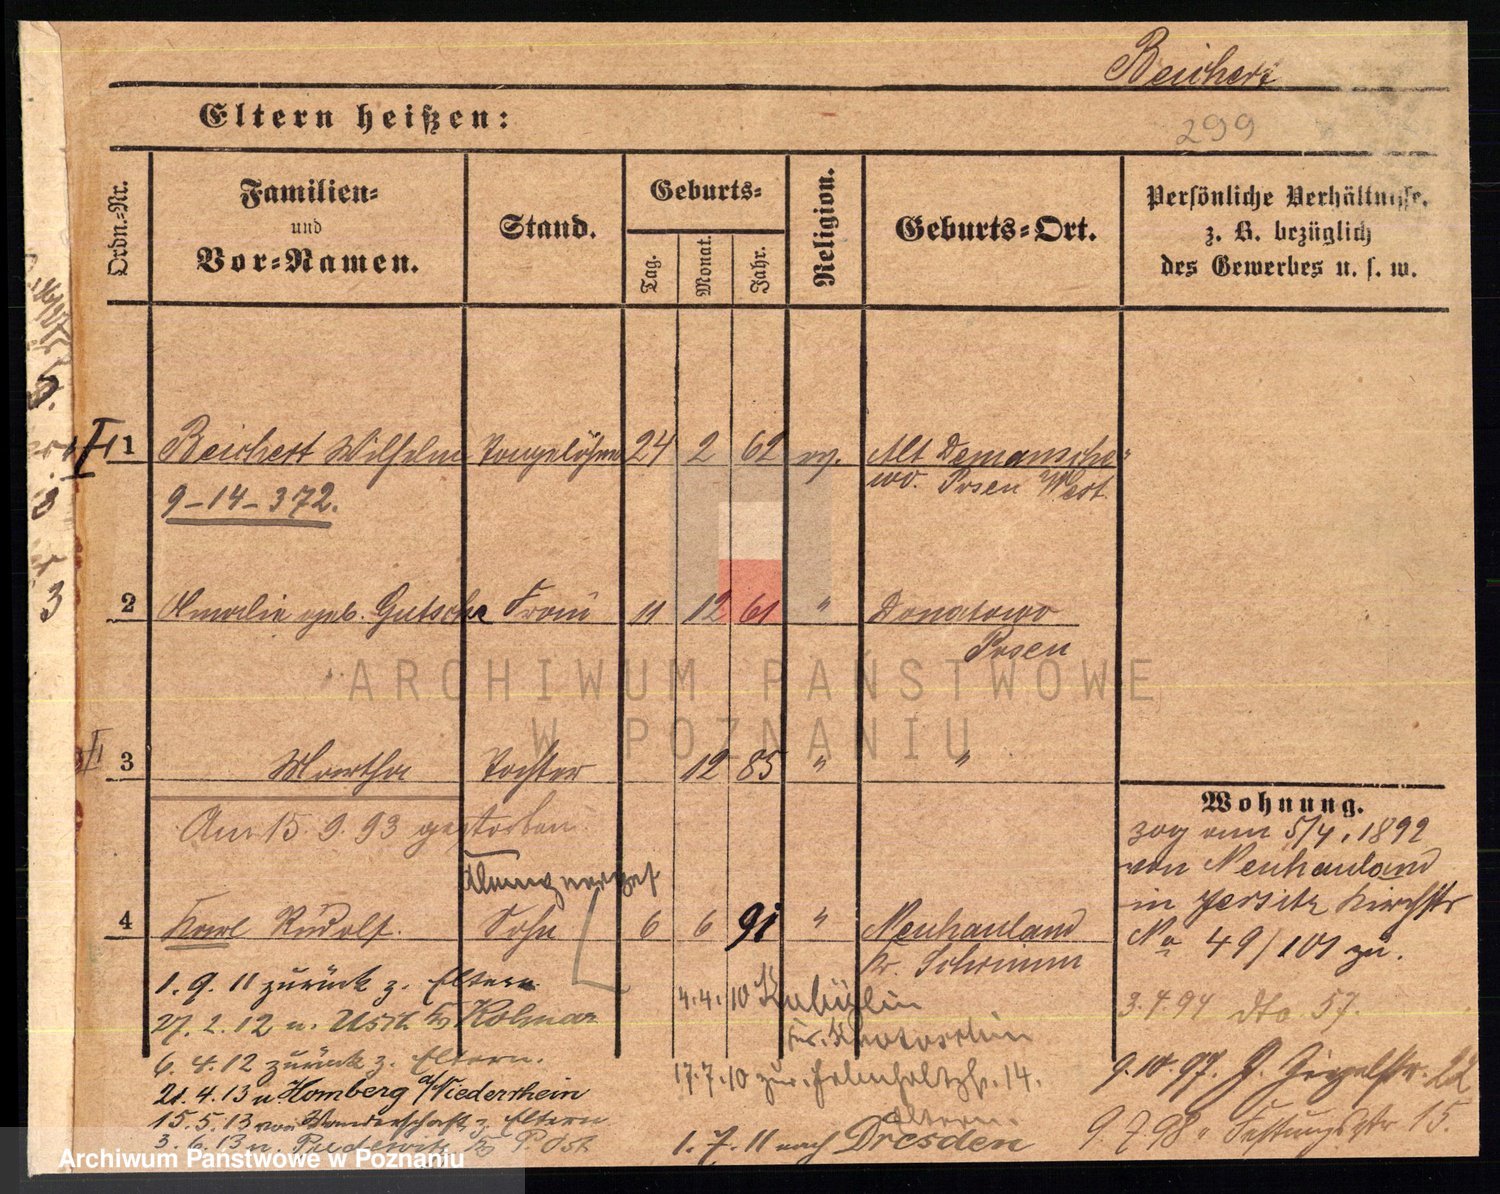 Reichert
299
Eltern heißen:
Ordn.-Nr.
Familien-
und
Vor-Namen.
Stand.
Geburts-
Tag.
Monat.
Jahr.
Religion.
Geburts-Ort.
Persönliche Verhältnisse,
z. B. bezüglich
des Gewerbes u. s. w.
1 Reichert Wilhelm 24 2 62 ev. Alt Demansche-
wo. Posen West
9-14-372.
2 Amalie geb. Gutsche Frau 11 12 61 " Donatowo
Posen
3 Martha Tochter 12 85 " "
Am 15 9. 93 gestorben.
4 Karl Rudolf. Sohn 6 6 91 " Neuhauland
Kr. Schrimm
Wohnung.
zog am 5/4. 1892
von Neuhauland
in Jersitz Kirchstr
No 49/101 zu.
3.4.94 dto 57.
9.10.97. 22
9.7.98 " Festungsstr 15.
1.9.11 zurück z. Eltern
27.2.12 n. Usch Kr Kolmar
6.4.12 zurück z. Eltern.
21.4.13 n Homberg a/Niederrhein
15.5.13 von Wanderschaft z. Eltern
3.6.13 n. P. Ost
4.4.10
Kr. Krotoschin
17.7.10 zur. 14.
Eltern.
1.7.11 nach Dresden
ARCHIWUM PAŃSTWOWE
W POZNANIU
Archiwum Państwowe w Poznaniu